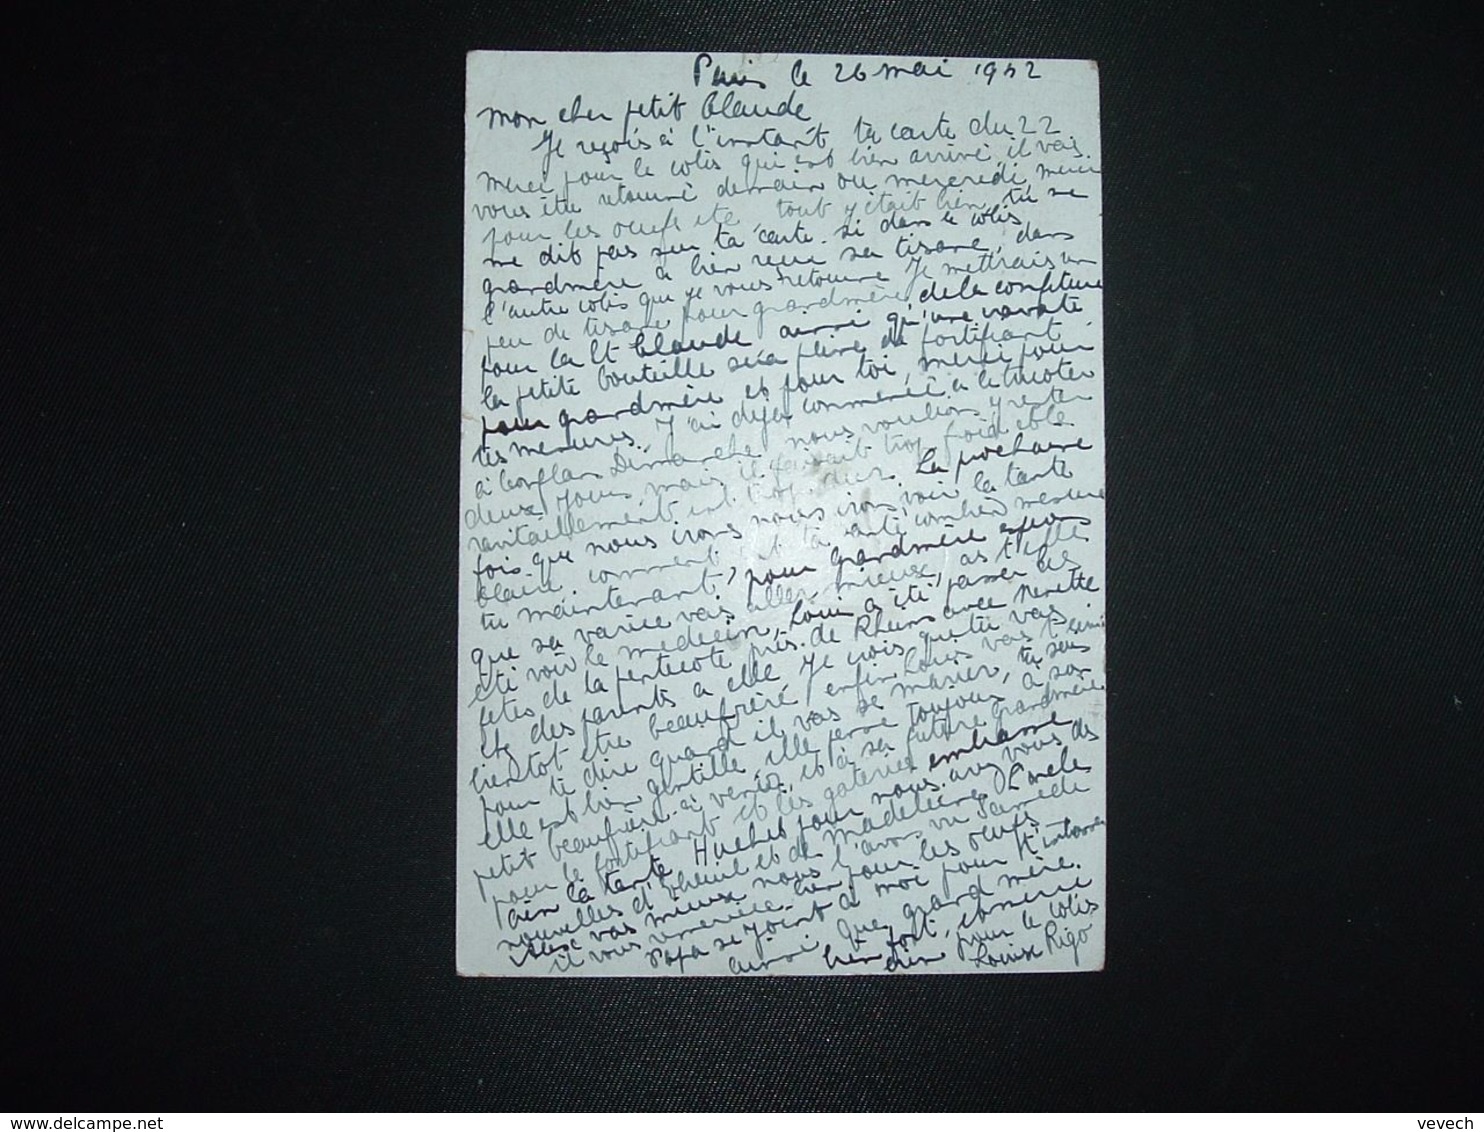 Paris le 26 mai 1942
mon cher petit Claude
Je reçois à l'instant ta carte du 22
merci pour le colis qui est bien arrivé, il vas
vous être retourné demain ou mercredi merci
pour les oeufs etc tout y était bien, tu ne
me dit pas sur ta carte si dans le colis
grandmère à bien reçu sa tisane, dans
l'autre colis que je vous retourne Je mettrais un
peu de tisane pour grandmère, de la confiture
pour la St Claude ainsi qu'une cravate
la petite bouteille sera pleine de fortifiant
pour grandmère et pour toi, merci pour
tes mesures, J'ai déjà commencé à le tricoter
à Conflans Dimanche nous voulions y rester
deux Jours mais il faisait trop froid et le
ravitaillement est trop dur. La prochaine
fois que nous irons nous irons voir la tante
Claire, comment est ta santé, combien mesure
tu maintenant, pour grandmère espérons
que sa varice vas aller mieux, as t'elle
été voir le medecin, Louis a été passer les
fêtes de la pentecote près de Rheims avec Nenette
et des parents à elle Je crois que tu vas
bientot être beaufrère enfin Louis vas t'écrire
pour te dire quand il vas se marier, tu sais
elle est bien gentille elle pense toujours à son
petit beaufrère à venir, et à sa future grandmère
pour le fortifiant et les gateries embrasse
bien la tante Huchet pour nous, avez vous des
nouvelles d' et de Madeleine, L'oncle
Alex vas mieux nous l'avons vu Samedi
il vous remercie bien pour les oeufs
Papa se joint à moi pour t'embrasser
ainsi que grand mère.
bien fort,
bien pour le colis
Louise Rigo
vevech